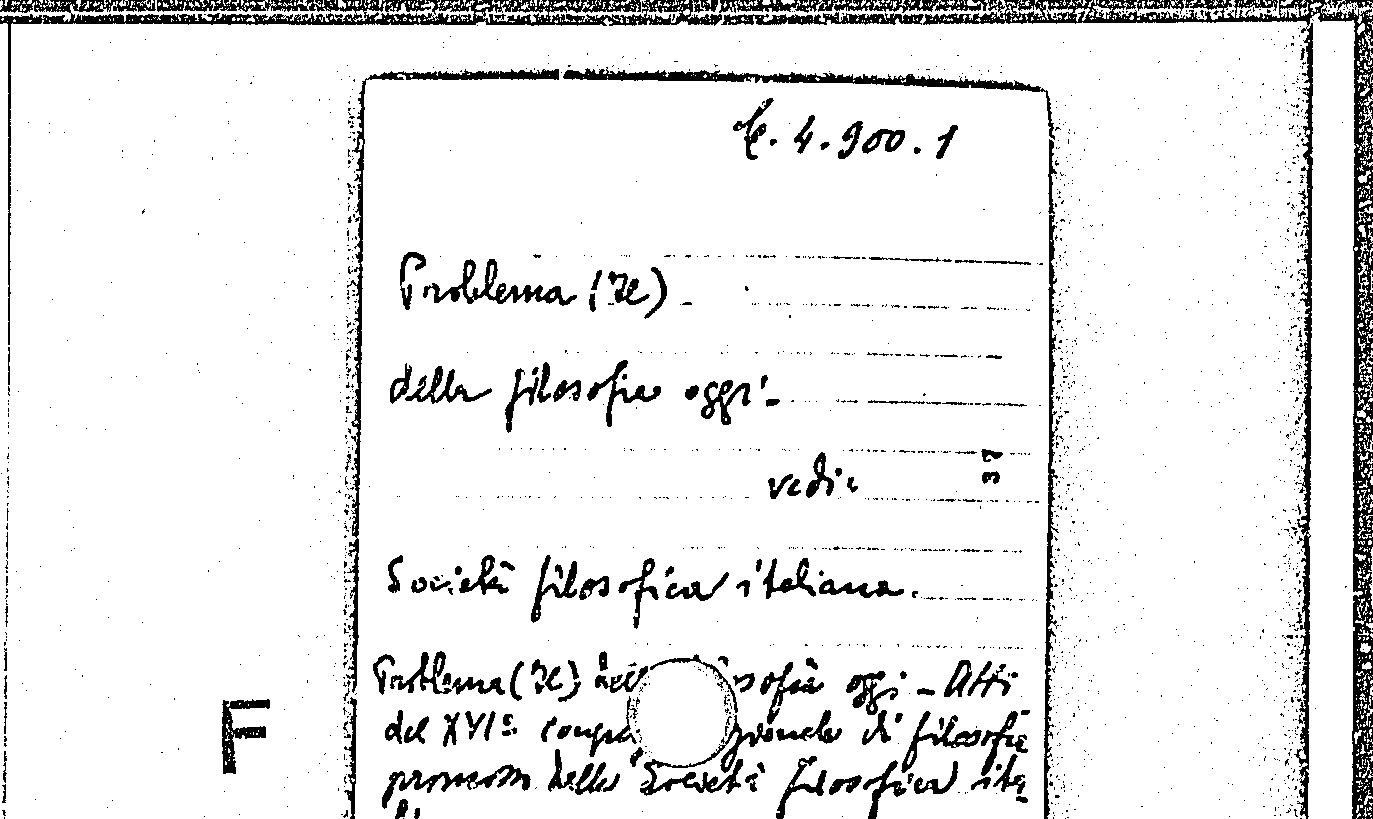 C. 4.900.1
Problema (Il)
della filosofia oggi.
vedi:
37
Società filosofica italiana.
Problema (Il) oggi - Atti
del XVI° di filosofia
F
promossi dalla Società filosofica ita-